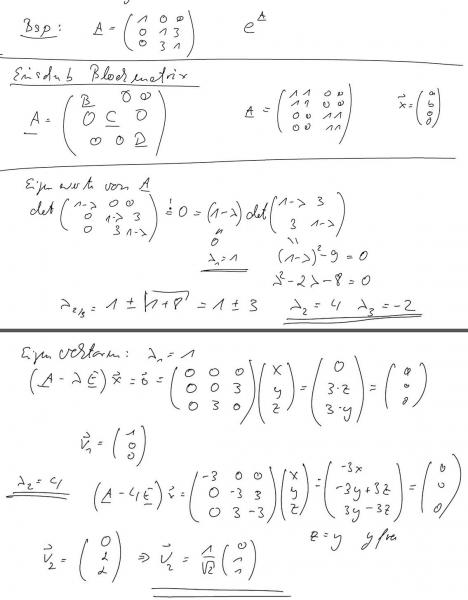 Bsp: A = ( 1 0 0 ; 0 1 3 ; 0 3 1 ) e^A
Einschub Blockmatrix
A = ( B 0 0 ; 0 C 0 ; 0 0 D ) A = ( 1 1 0 0 ; 1 1 0 0 ; 0 0 1 1 ; 0 0 1 1 )
Eigenwerte von A
det ( 1-λ 0 0 ; 0 1-λ 3 ; 0 3 1-λ ) != 0 = (1-λ) det ( 1-λ 3 ; 3 1-λ )
0
λ₁ = 1 (1-λ)² - 9 = 0
λ² - 2λ - 8 = 0
λ₂/₃ = 1 ± √(1+8) = 1 ± 3 λ₂ = 4 λ₃ = -2
Eigenvektoren: λ₁ = 1
(A - λE) x⃗ = 0⃗ = ( 0 0 0 ; 0 0 3 ; 0 3 0 ) ( x ; y ; z ) = ( 0 ; 3·z ; 3·y ) = ( 0 ; 0 ; 0 )
v⃗₁ = ( 1 ; 0 ; 0 )
λ₂ = 4 (A - 4E) x⃗ = ( -3 0 0 ; 0 -3 3 ; 0 3 -3 ) ( x ; y ; z ) = ( -3x ; -3y+3z ; 3y-3z ) = ( 0 ; 0 ; 0 )
z = y y frei
v⃗₂ = ( 0 ; 2 ; 2 ) ⇒ v⃗₂ = 1/√2 ( 0 ; 1 ; 1 )